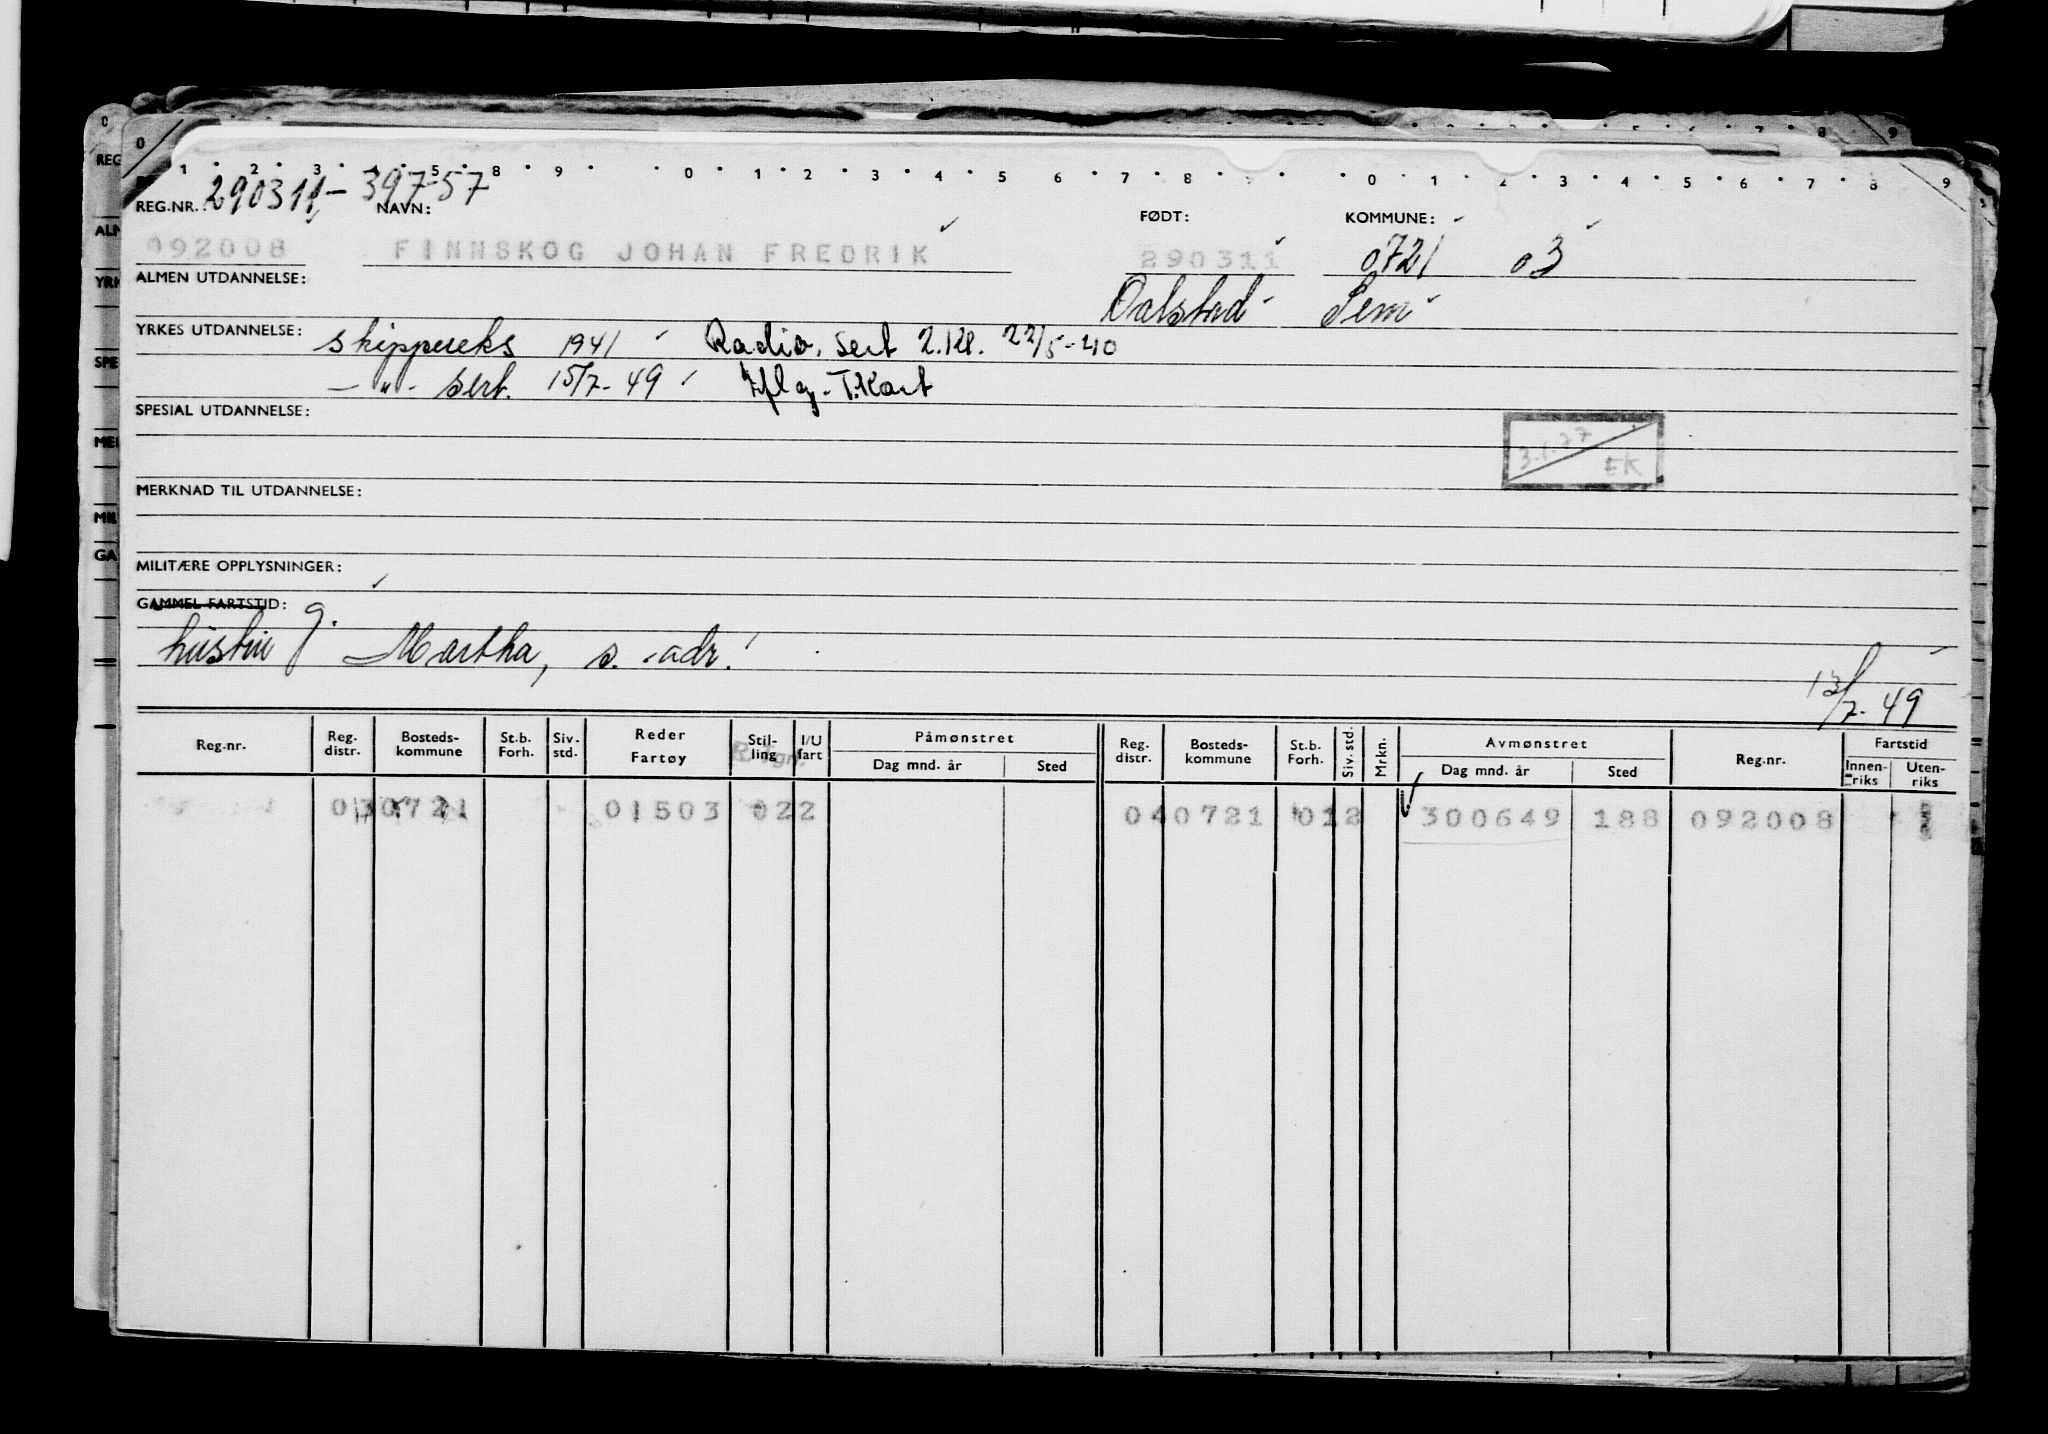 290311, - 39757
REG.NR.: NAVN: FØDT: KOMMUNE:
092008 FINNSKOG JOHAN FREDRIK 290311 0721 03
ALMEN UTDANNELSE:
Dalstad Sem
YRKES UTDANNELSE: skippereks 1941 Radio. sert 2.kl. 22/5-40
- " - sert. 15/7-49 Iflg. T.Kort
SPESIAL UTDANNELSE:
3.1.77 EK
MERKNAD TIL UTDANNELSE:
MILITÆRE OPPLYSNINGER:
GAMMEL FARTSTID: g.
hustru Martha, s. adr.
13/7-49
Reg.nr. Reg. distr. Bosteds-kommune St.b. Forh. Siv. std. Reder Fartøy Stil-ling I/U fart Påmønstret Dag mnd. år Sted Reg. distr. Bosteds-kommune St.b. Forh. Siv. std. Mrkn. Avmønstret Dag mnd. år Sted Reg.nr. Fartstid Innen-riks Uten-riks
030721 01503 022 040721 012 300649 188 092008